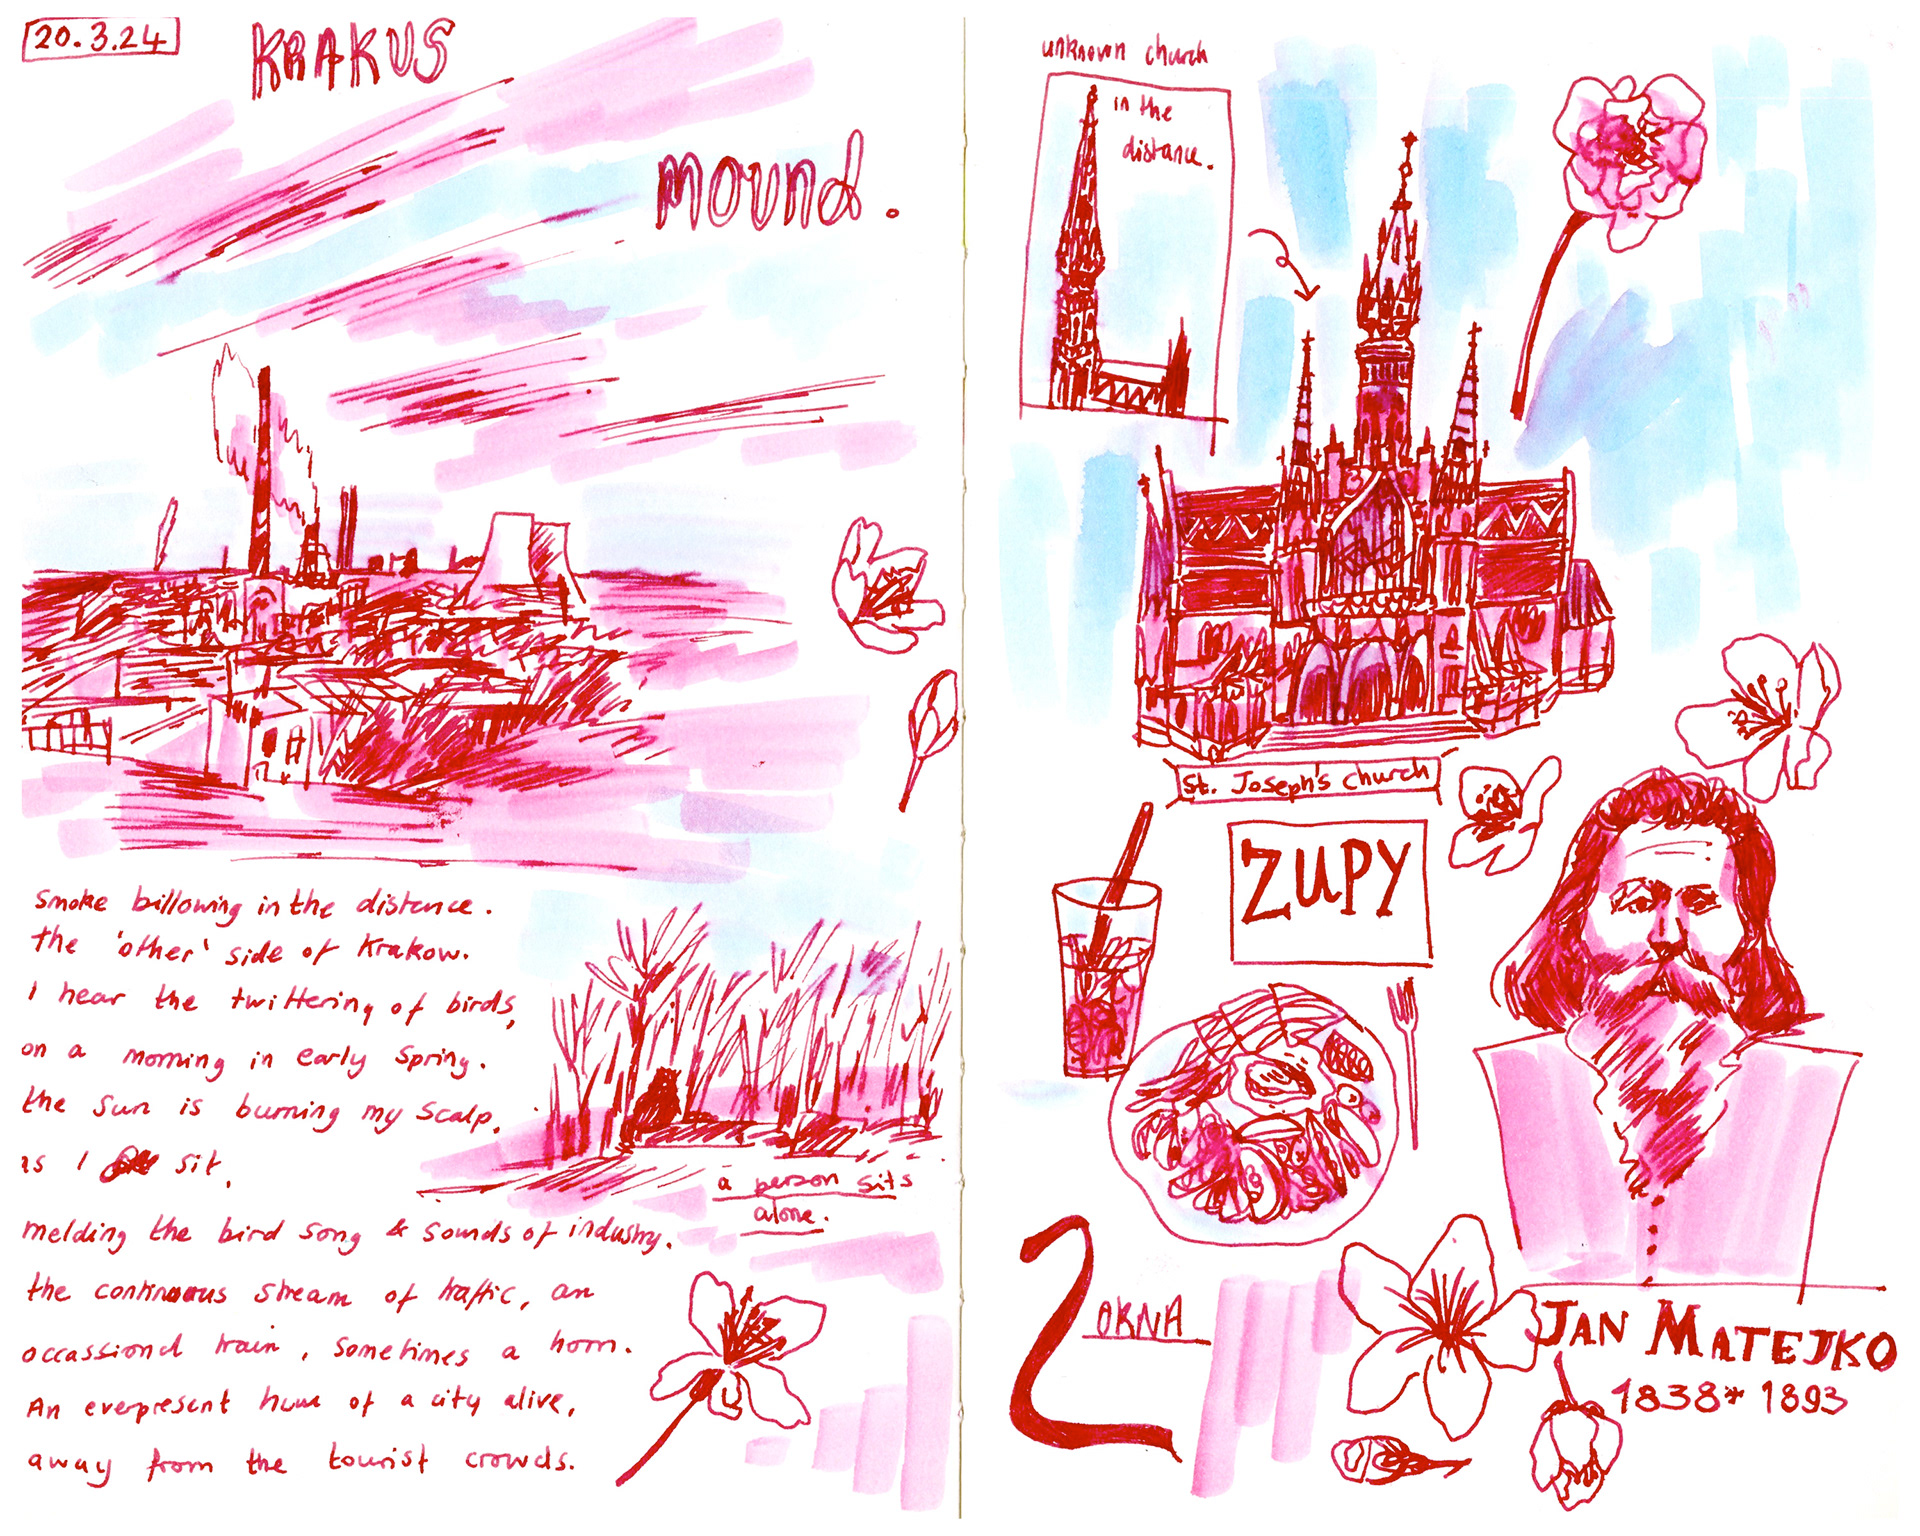 20.3.24
KRAKUS
MOUND.
smoke billowing in the distance.
the 'other' side of Krakow.
I hear the twittering of birds,
on a morning in early Spring.
the sun is burning my scalp,
as I sit.
melding the bird song & sounds of industry.
the continuous stream of traffic, an
occassional train, sometimes a horn.
An everpresent hum of a city alive,
away from the tourist crowds.
a person sits
alone.
unknown church
in the
distance.
St. Joseph's church
ZUPY
2 OKNA
JAN MATEJKO
1838* 1893